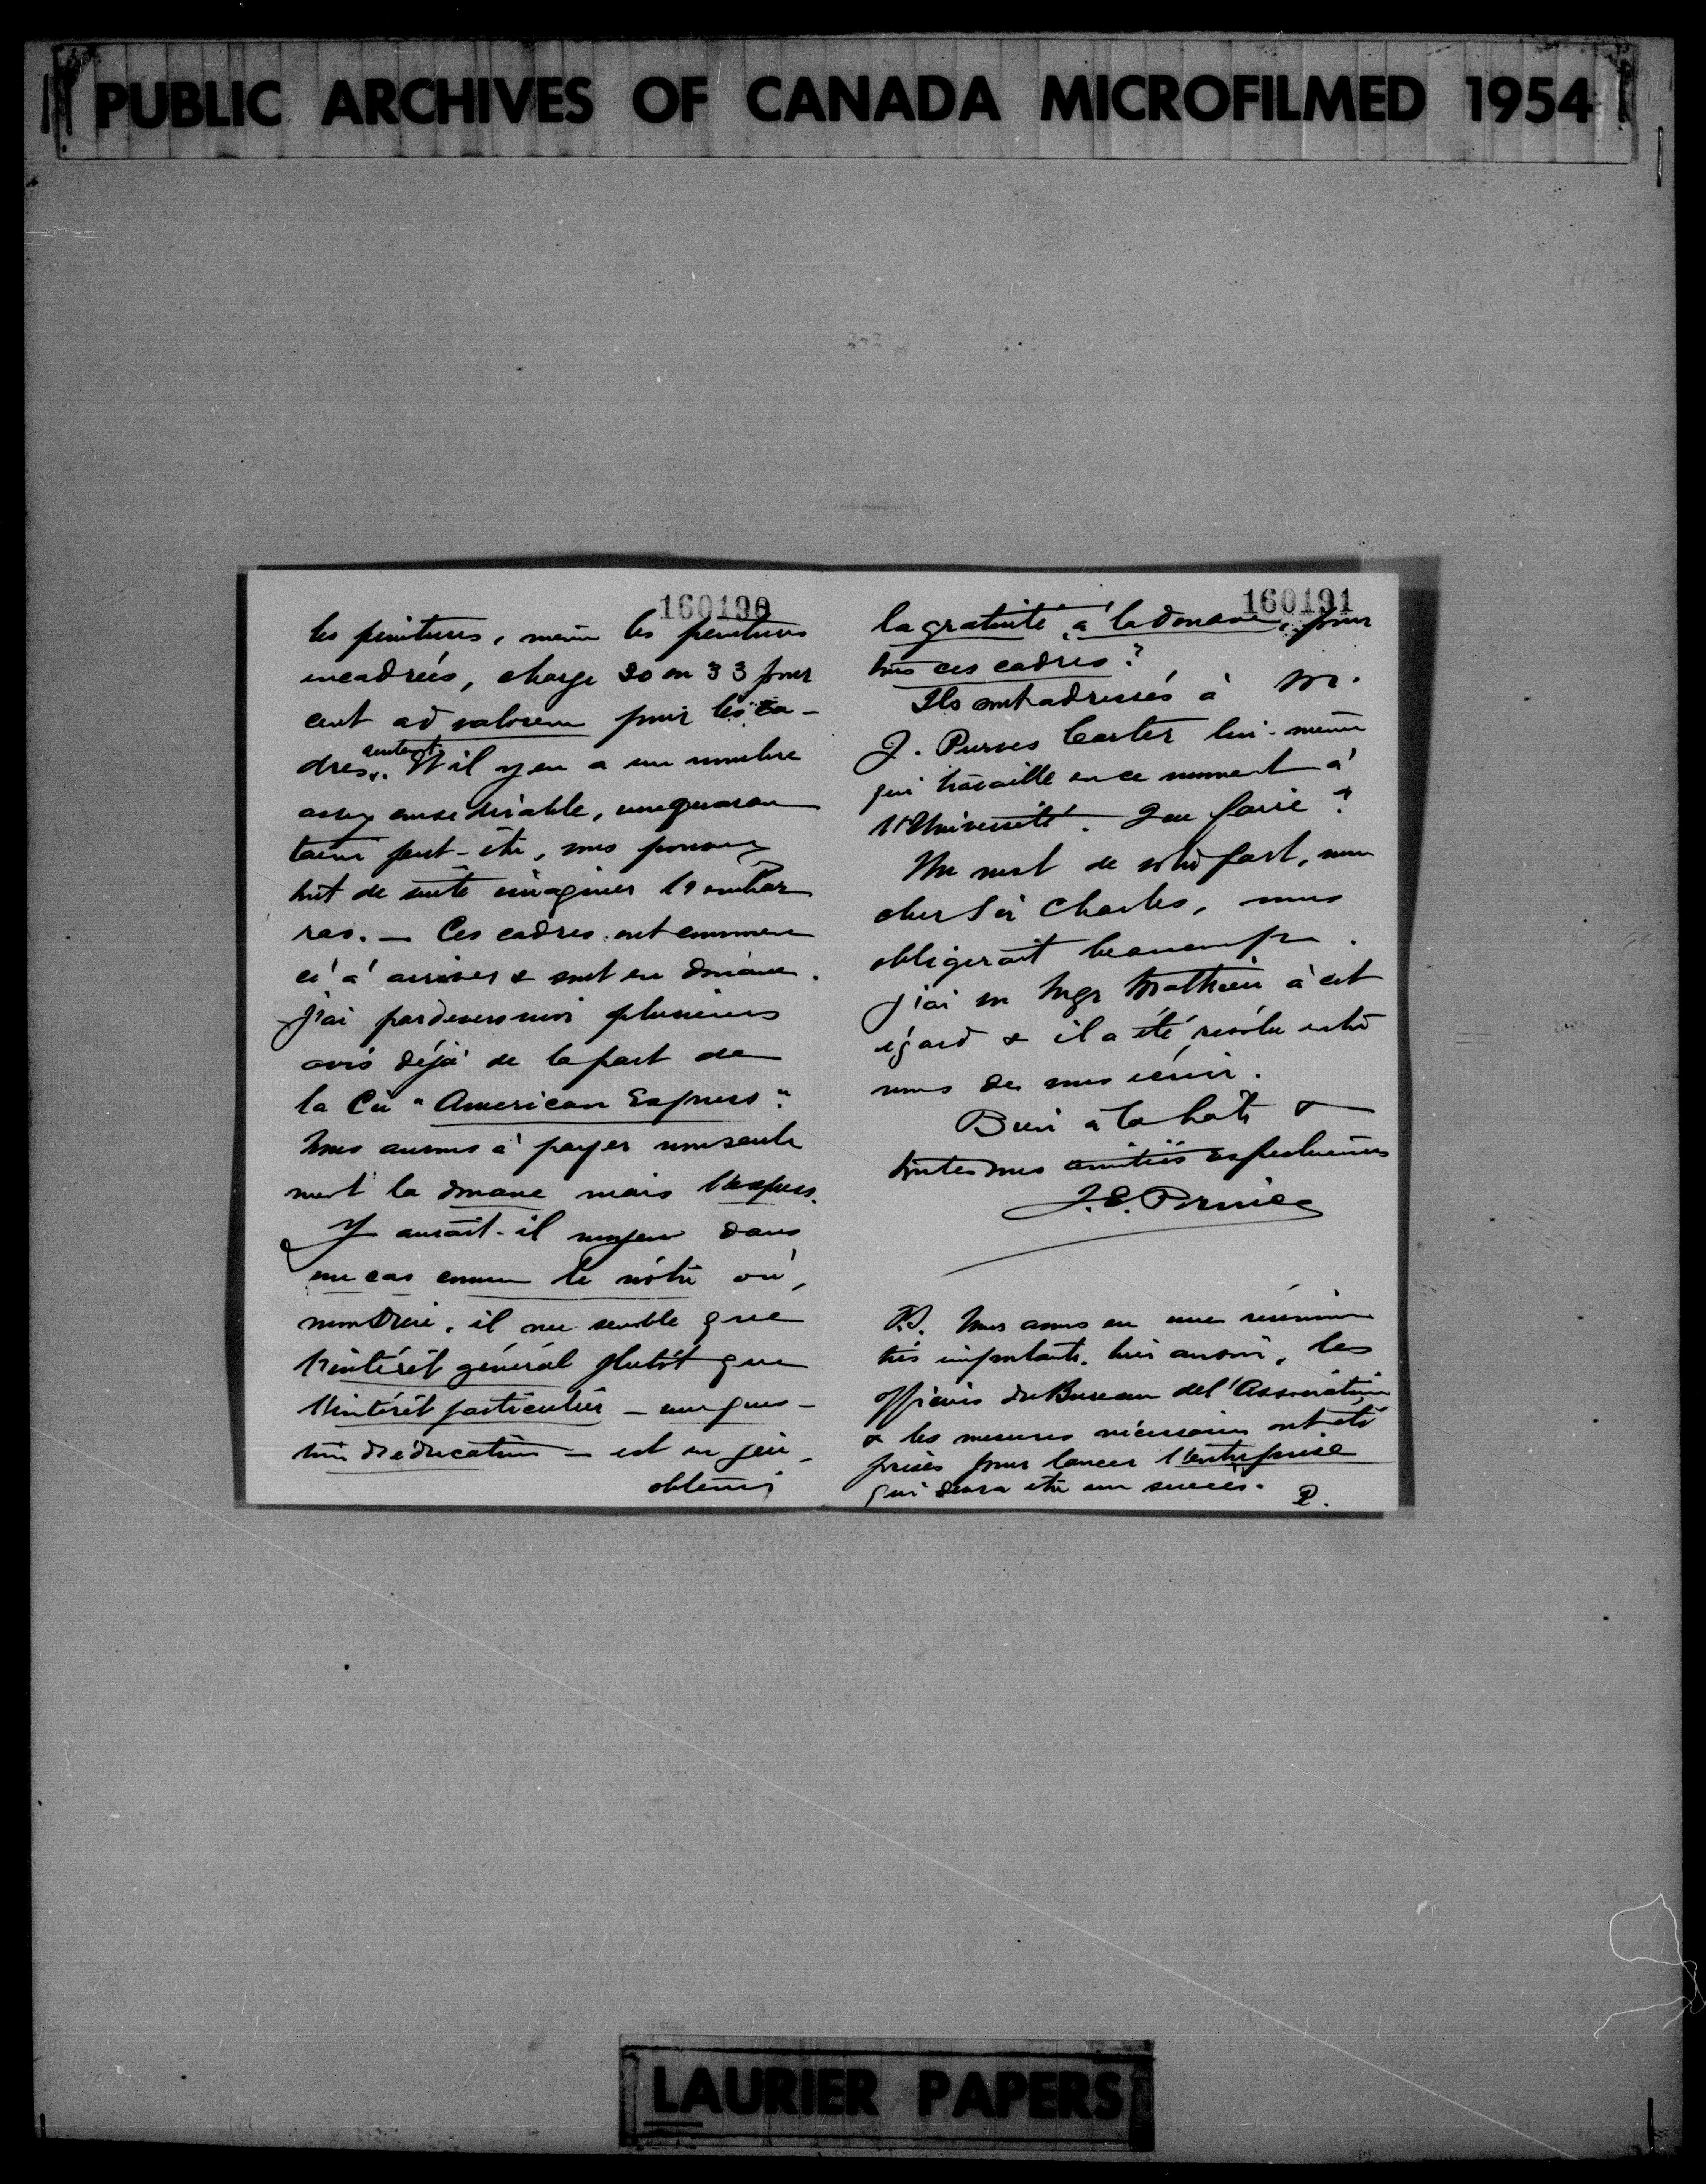 PUBLIC ARCHIVES OF CANADA MICROFILMED 1954
160190
les peintures, même les peintures
encadrées, charge 30 ou 33 pour
cent ad valorem pour les ca-
dres seulement. Et il y en a un nombre
assez considérable, une quaran
taine peut-être, vous pouvez
tout de suite imaginer l'embar
ras. — Ces cadres ont commen
cé à arriver & sont en douane.
J'ai pardevers moi plusieurs
avis déjà de la part de
la Cie "American Express".
Nous aurons à payer non seule
ment la douane mais l'express.
Y aurait-il moyen dans
un cas comme le nôtre où,
il me semble que
l'intérêt général plutôt que
l'intérêt particulier — une ques-
tion d'éducation — est en jeu
obtenir
160191
la gratuité à la douane, pour
tous ces cadres?
Ils sont adressés à M.
J. Purves Carter lui-même
qui travaille en ce moment à
l'Université. Que faire?
Un mot de votre part, mon
cher Sir Charles, nous
obligerait beaucoup.
J'ai vu Mgr Mathieu à cet
égard & il a été résolu entre
nous de vous écrire.
Bien à la hâte &
toutes mes amitiés respectueuses
J. E. Prince
P.S. Nous avons eu une réunion
très importante, hier au soir, les
officiers du Bureau de l'Association
& les mesures nécessaires ont été
prises pour lancer l'entreprise
qui devra être un succès. P.
LAURIER PAPERS